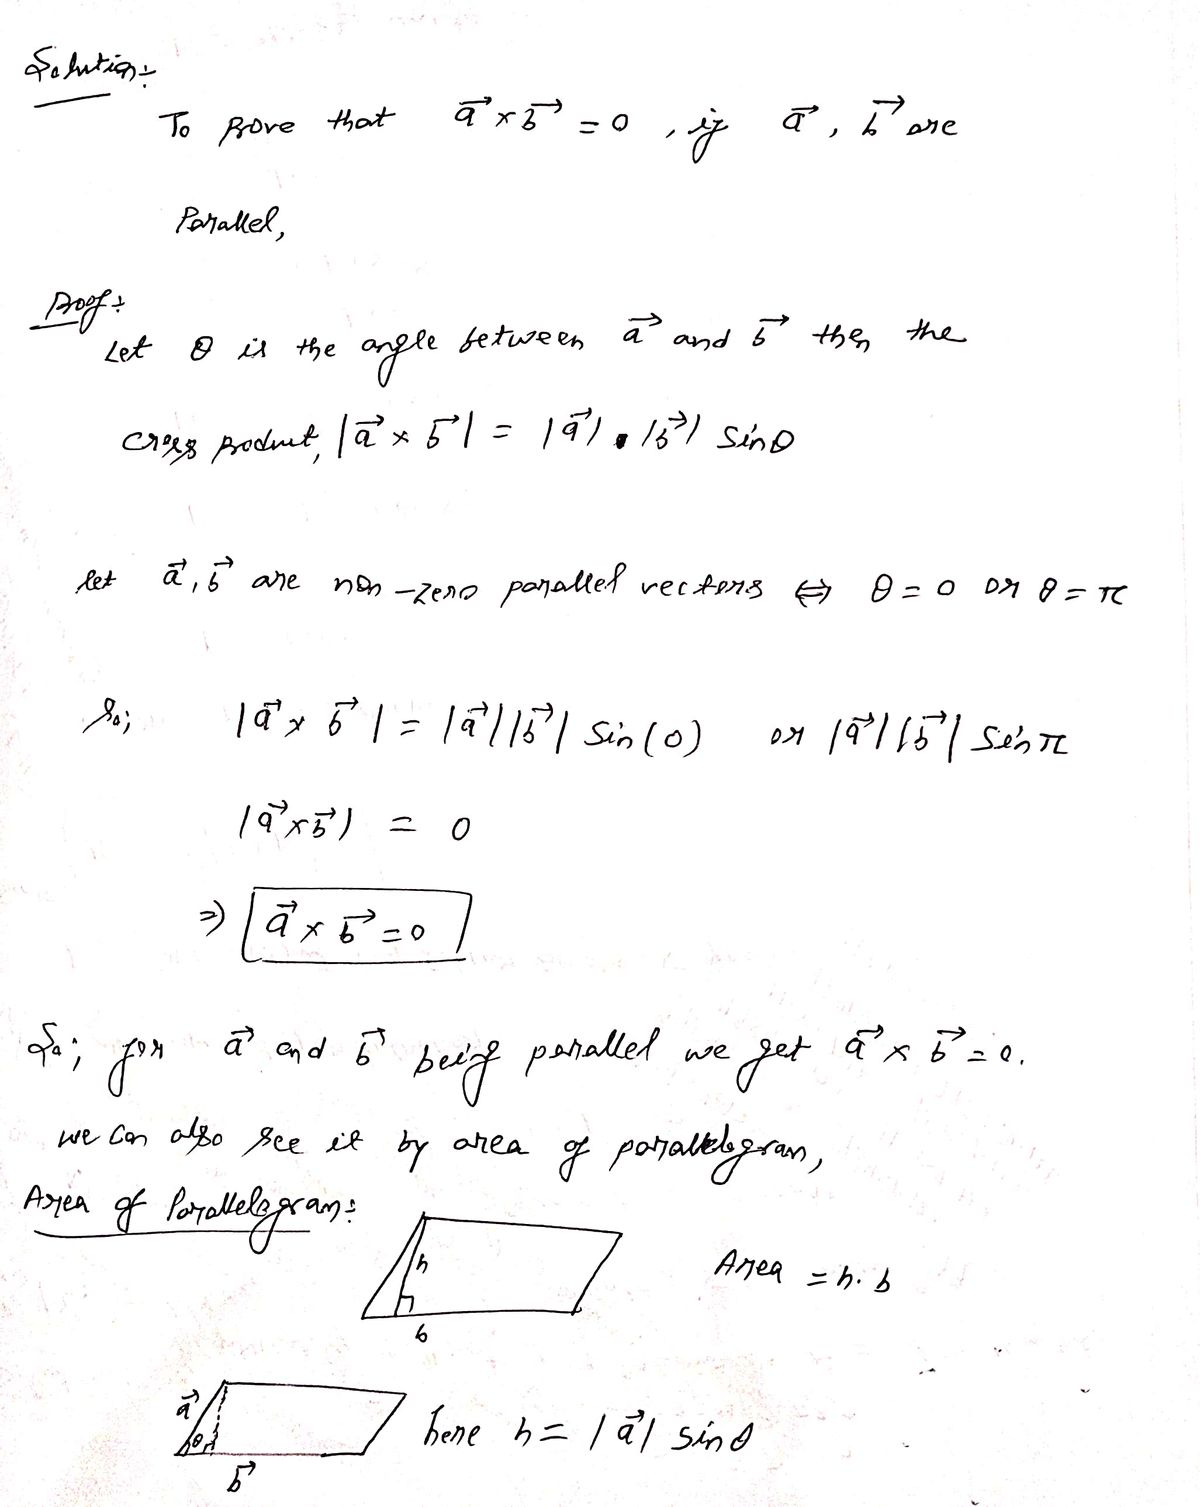 Solution:-
To prove that a⃗ × b⃗ = 0 , if a⃗ , b⃗ are
Parallel,
Proof:-
Let θ is the angle between a⃗ and b⃗ then the
Cross product, |a⃗ × b⃗| = |a⃗| . |b⃗| Sinθ
let a⃗, b⃗ are non-zero parallel vectors ⇔ θ = 0 or θ = π
So; |a⃗ × b⃗| = |a⃗||b⃗| Sin(0) or |a⃗||b⃗| Sin π
|a⃗ × b⃗| = 0
⇒ a⃗ × b⃗ = 0
So; for a⃗ and b⃗ being parallel we get a⃗ × b⃗ = 0.
we can also see it by area of parallelogram,
Area of Parallelogram:-
h
b
Area = h. b
a⃗
θ
b⃗
here h = |a⃗| sinθ